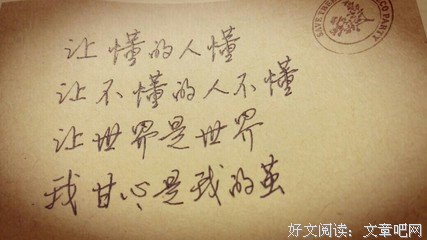 让懂的人懂
让不懂的人不懂
让世界是世界
我甘心是我的茧
好文阅读：文章吧网